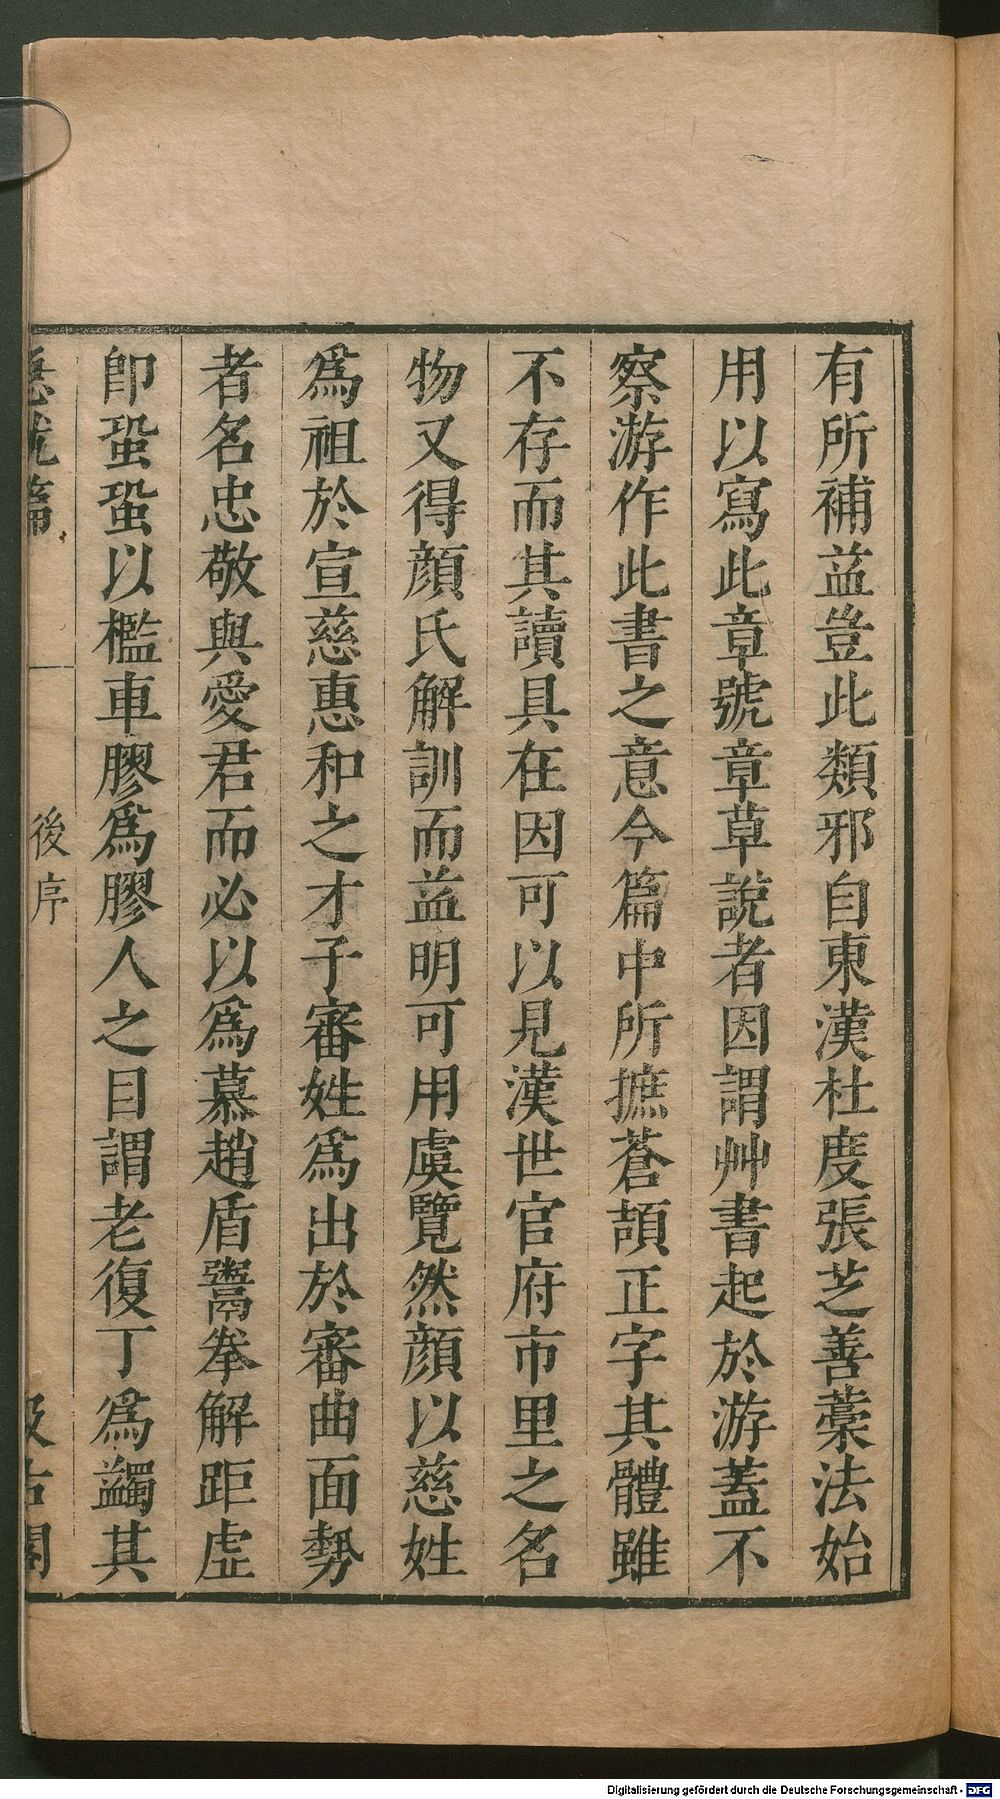 有所補益豈此類邪自東漢杜度張芝善藁法始
用以寫此章號章草說者因謂艸書起於游蓋不
察游作此書之意今篇中所摭蒼頡正字其體雖
不存而其讀具在因可以見漢世官府市里之名
物又得顏氏解訓而益明可用虞覽然顏以慈姓
爲祖於宣慈惠和之才子審姓爲出於審曲面勢
者名忠敬與愛君而必以爲慕趙盾鬻拳解距虛
卽蛩蛩以檻車膠爲膠人之目謂老復丁爲蠲其
急就篇
後序
汲古閣
Digitalisierung gefördert durch die Deutsche Forschungsgemeinschaft - DFG